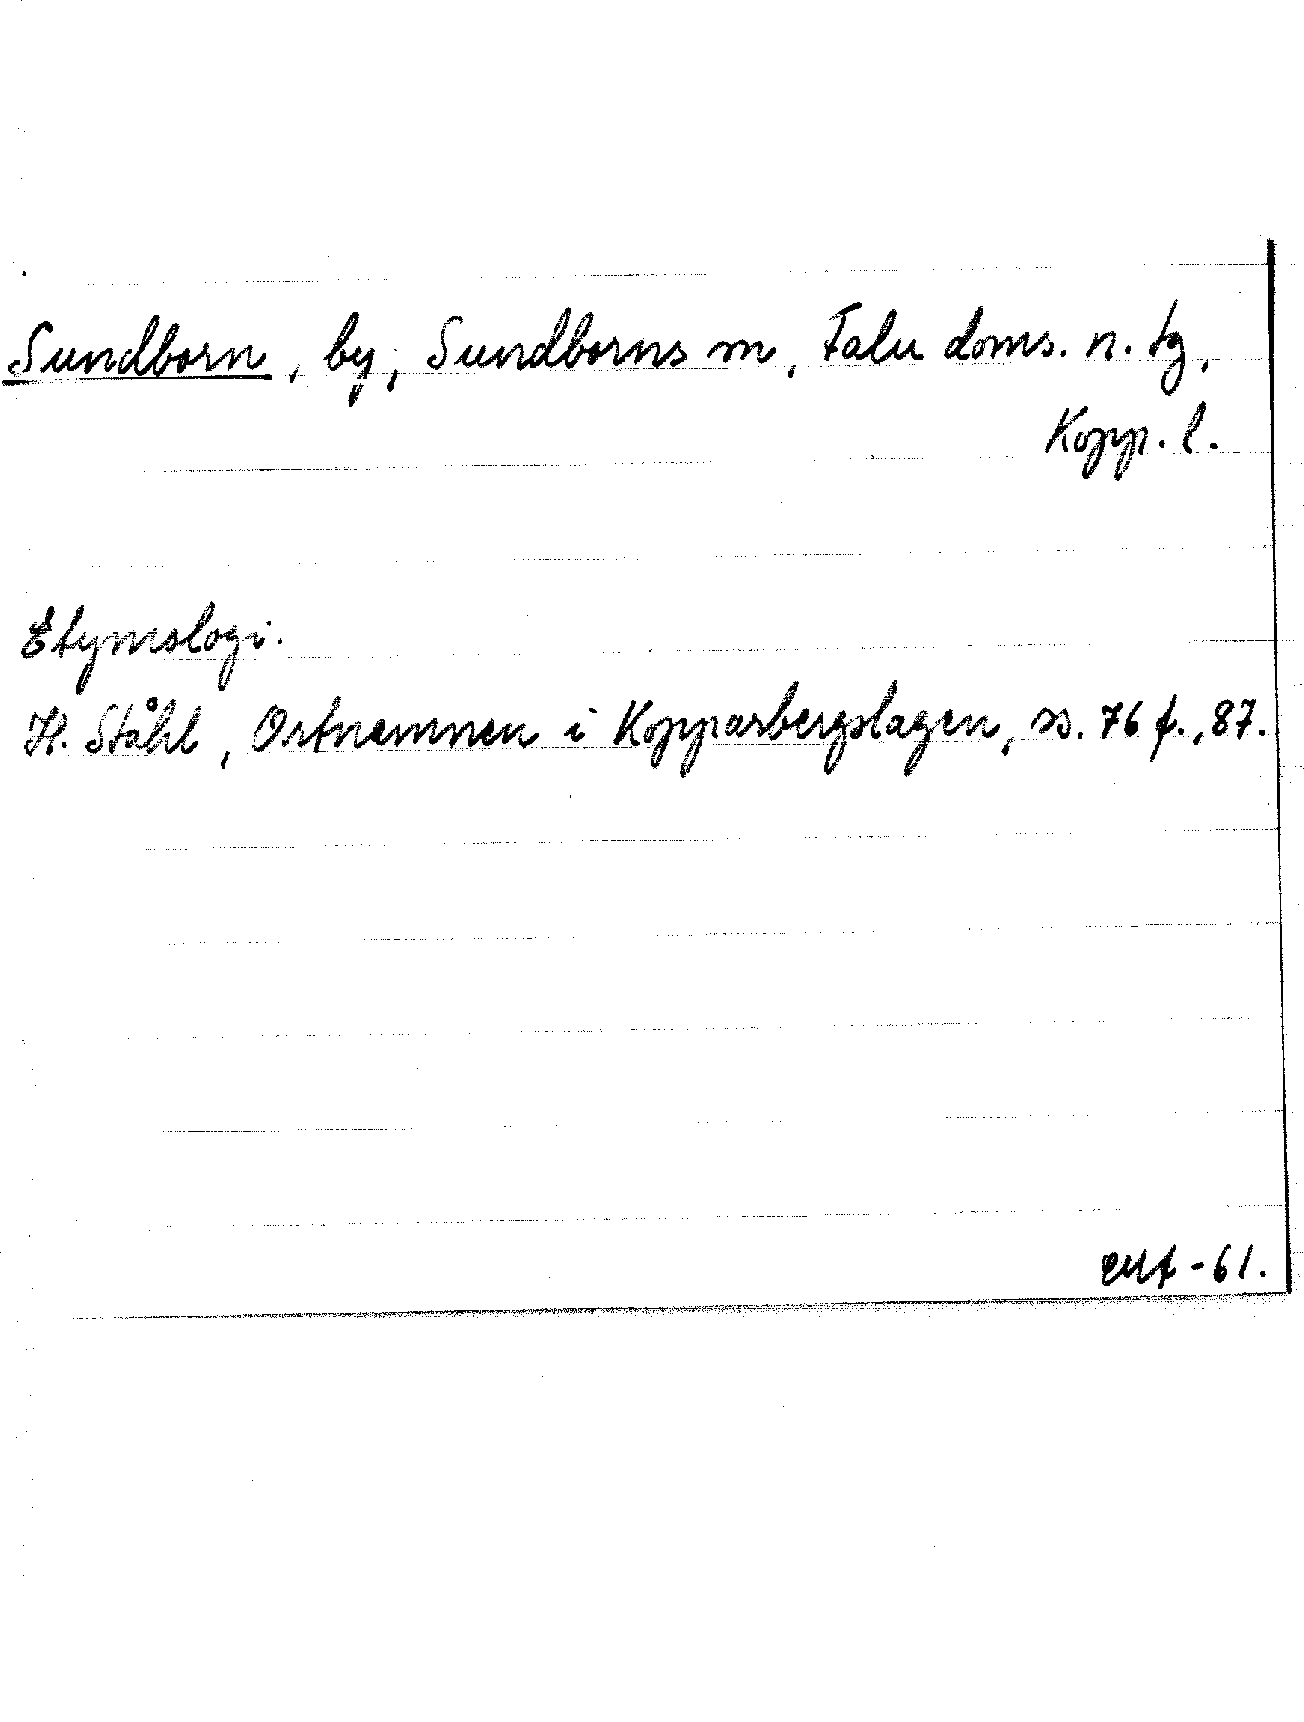 Sundborn, by, Sundborns sn, Falu doms. n. tg,
Kopp. l.
Etymologi.
H. Ståhl, Ortnamnen i Kopparbergslagen, ss. 76 f., 87.
-61.